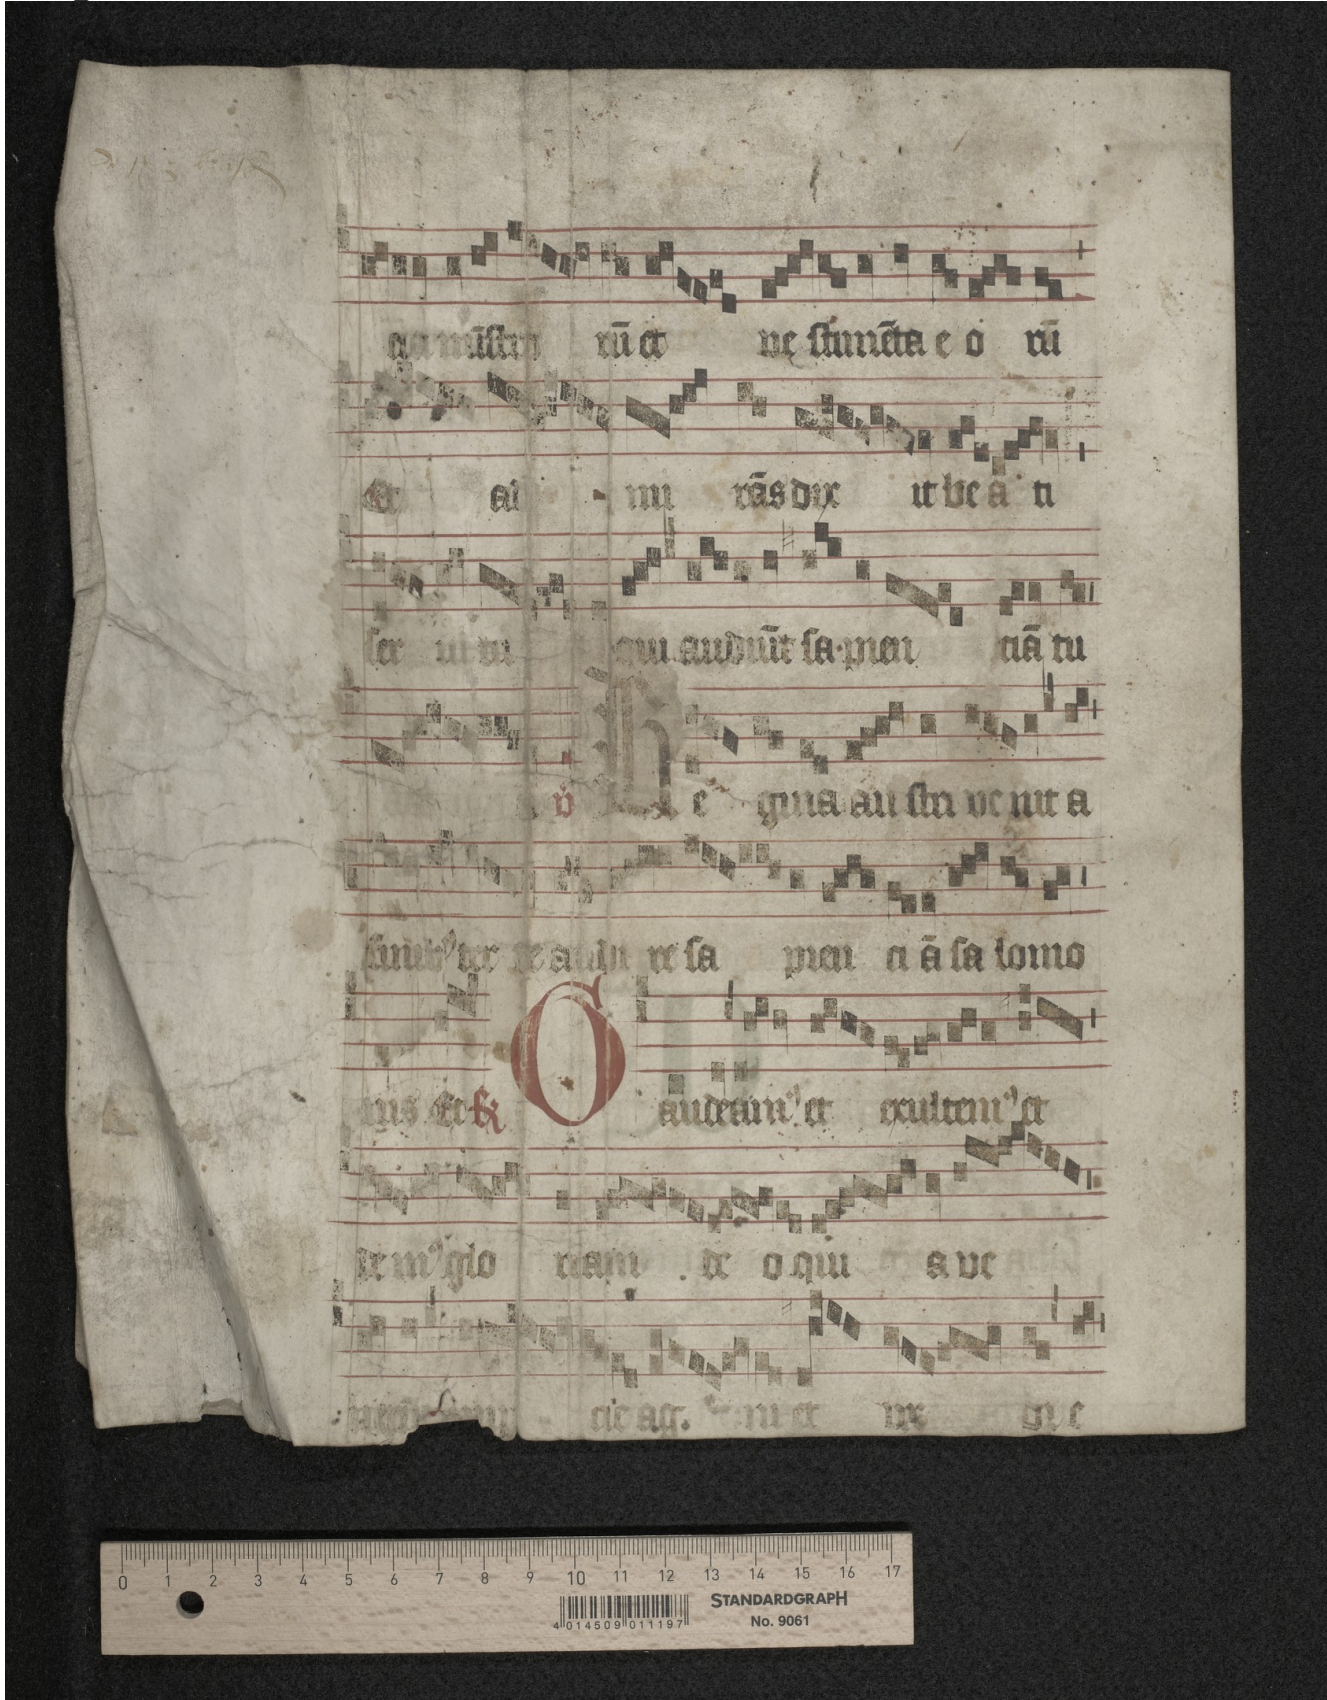 ministro rū et ve stimēta e o rū
Et ad mi rās dix it be a ti
ser ui tu qui audiūt sa pien ciā tu
v̄ R e gina au stri ve nit a
finibꝰ ter re audi re sa pien ci ā sa lomo
nis Et R G audeamꝰ et exultemꝰ et
de mꝰ glo riam de o qui a ve
cie agni et vx
0 1 2 3 4 5 6 7 8 9 10 11 12 13 14 15 16 17
4 014509 011197
STANDARDGRAPH
No. 9061